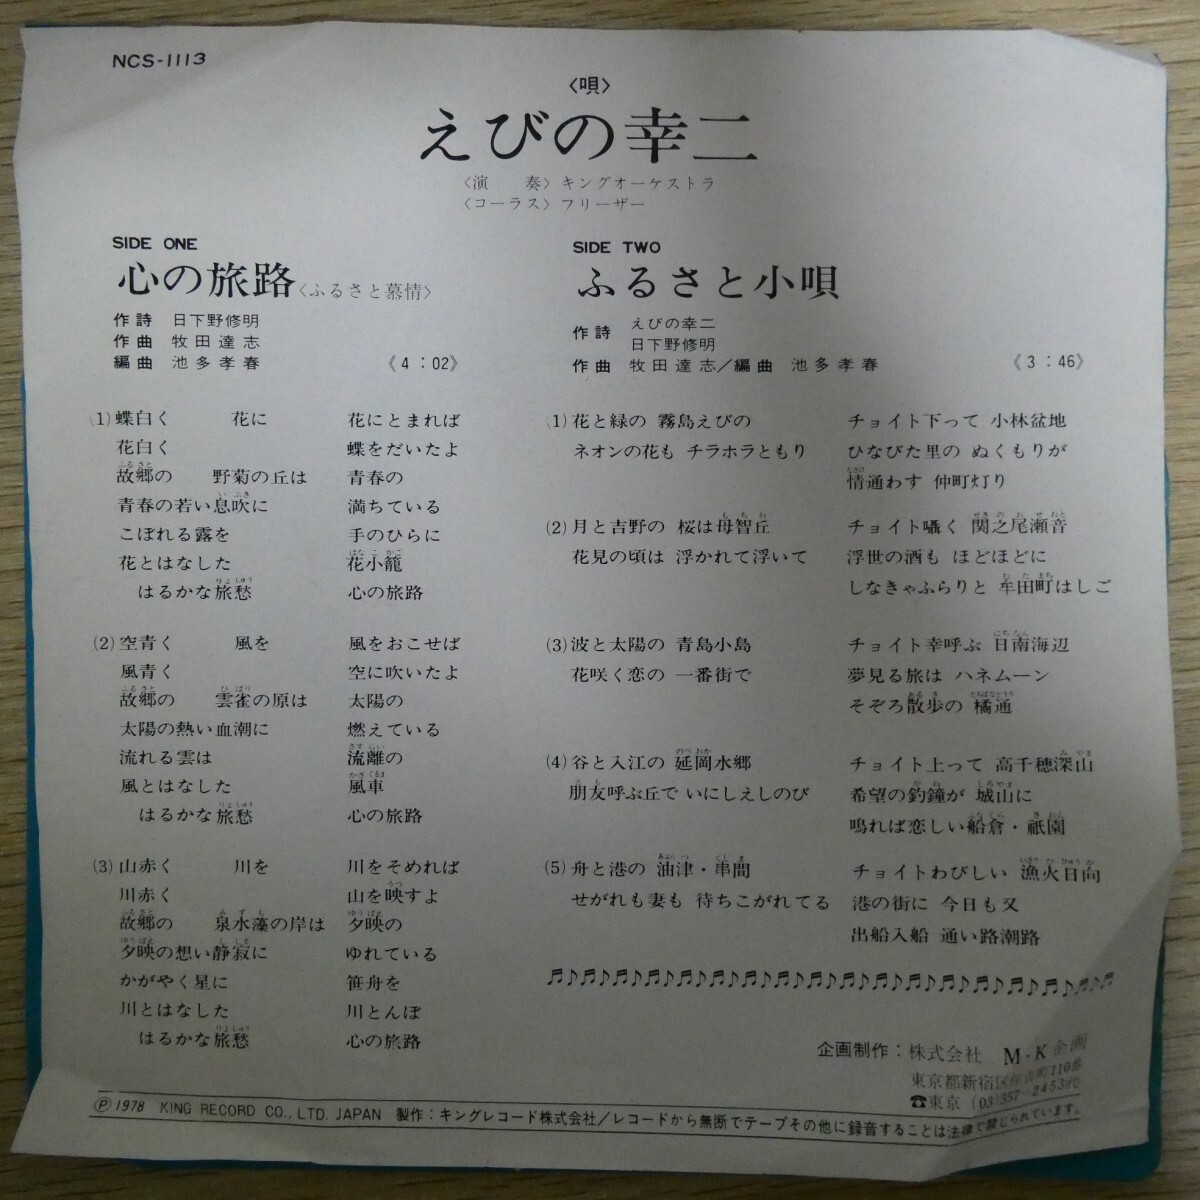 NCS-1113
〈唄〉
えびの幸二
〈演　奏〉キングオーケストラ
〈コーラス〉フリーザー
SIDE ONE
心の旅路〈ふるさと慕情〉
作詩 日下野修明
作曲 牧田達志
編曲 池多孝春 《4：02》
(1)蝶白く 花に 花にとまれば
花白く 蝶をだいたよ
故郷の 野菊の丘は 青春の
青春の若い息吹に 満ちている
こぼれる露を 手のひらに
花とはなした 花小籠
はるかな旅愁 心の旅路
(2)空青く 風を 風をおこせば
風青く 空に吹いたよ
故郷の 雲雀の原は 太陽の
太陽の熱い血潮に 燃えている
流れる雲は 流離の
風とはなした 風車
はるかな旅愁 心の旅路
(3)山赤く 川を 川をそめれば
川赤く 山を映すよ
故郷の 泉水藻の岸は 夕映の
夕映の想い静寂に ゆれている
かがやく星に 笹舟を
川とはなした 川とんぼ
はるかな旅愁 心の旅路
SIDE TWO
ふるさと小唄
作詩 えびの幸二
日下野修明
作曲 牧田達志／編曲 池多孝春 《3：46》
(1)花と緑の 霧島えびの チョイト下って 小林盆地
ネオンの花も チラホラともり ひなびた里の ぬくもりが
情通わす 仲町灯り
(2)月と吉野の 桜は母智丘 チョイト囁く 関之尾瀬音
花見の頃は 浮かれて浮いて 浮世の酒も ほどほどに
しなきゃふらりと 牟田町はしご
(3)波と太陽の 青島小島 チョイト幸呼ぶ 日南海辺
花咲く恋の 一番街で 夢見る旅は ハネムーン
そぞろ散歩の 橘通
(4)谷と入江の 延岡水郷 チョイト上って 高千穂深山
朋友呼ぶ丘で いにしえしのび 希望の釣鐘が 城山に
鳴れば恋しい船倉・祇園
(5)舟と港の 油津・串間 チョイトわびしい 漁火日向
せがれも妻も 待ちこがれてる 港の街に 今日も又
出船入船 通い路潮路
企画制作：株式会社 M・K企画
東京都新宿区住吉町110番
☎東京 (03)357-2453㈹
Ⓟ1978 KING RECORD CO., LTD. JAPAN 製作：キングレコード株式会社／レコードから無断でテープその他に録音することは法律で禁じられています。